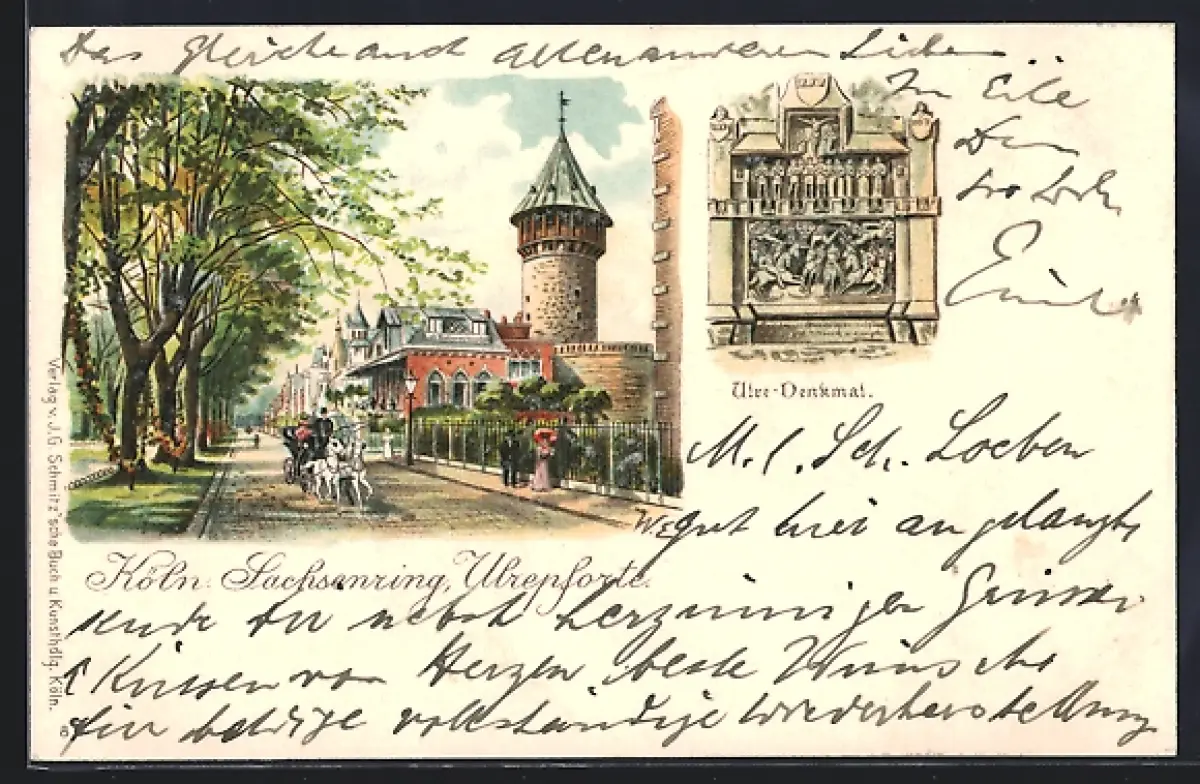 Das Gleiche auch allen anderen Lieben ..
In Eile
Dein
Emil
Ulre-Denkmal.
M. l. Sch. Soeben
gut hier angelangt
Köln: Sachsenring, Ulrepforte.
sende Dir nebst herzinnigen Grüssen
& Küssen von Herzen beste Wünsche
für baldige vollständige Wiederherstellung
Verlag v. J.G. Schmitz'sche Buch u. Kunsthdlg. Köln.
8